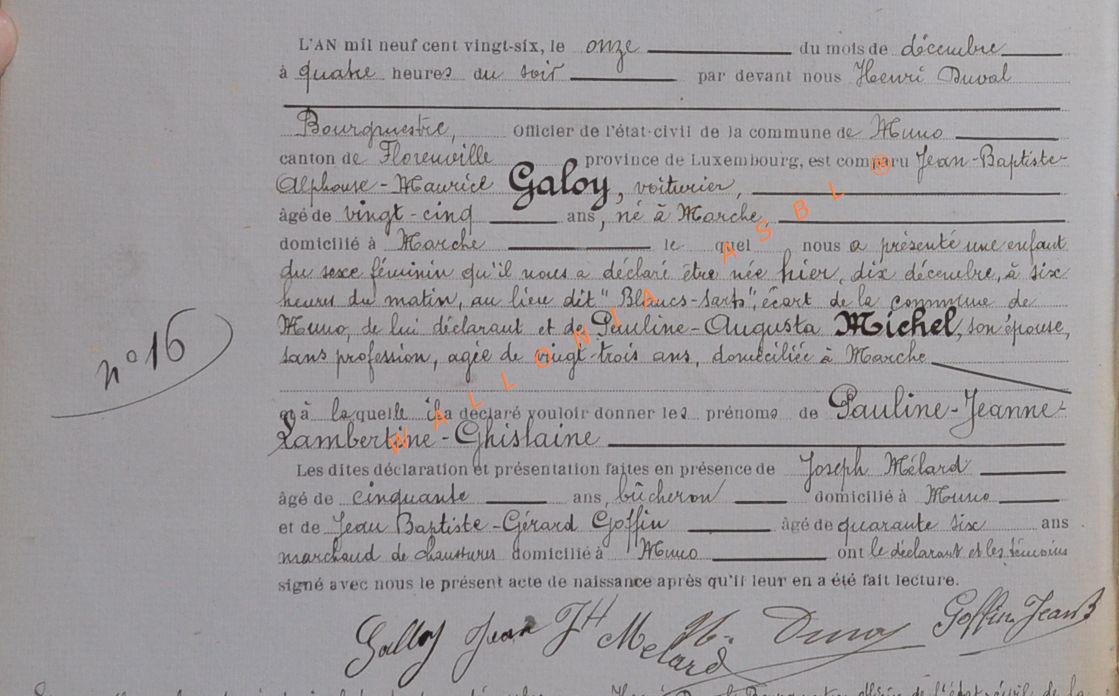 L'AN mil neuf cent vingt-six, le onze du mois de décembre
à quatre heures du soir par devant nous Henri Duval
Bourgmestre, Officier de l'état-civil de la commune de Muno
canton de Florenville province de Luxembourg, est comparu Jean-Baptiste-
Alphonse-Maurice Galoy, voiturier,
âgé de vingt-cinq ans, né à Marche,
domicilié à Marche le quel nous a présenté une enfant
du sexe féminin qu'il nous a déclaré être née hier, dix décembre, à six
heures du matin, au lieu dit "Blancs-Sarts", écart de la commune de
Muno, de lui déclarant et de Pauline-Augusta Michel, son épouse,
sans profession, agée de vingt-trois ans, domiciliée à Marche
nº 16
à laquelle il a déclaré vouloir donner les prénoms de Pauline-Jeanne-
Lambertine-Ghislaine
Les dites déclaration et présentation faites en présence de Joseph Mélard
âgé de cinquante ans, bûcheron domicilié à Muno
et de Jean Baptiste-Gérard Goffin âgé de quarante six ans
marchand de chaussures domicilié à Muno ont le déclarant et les témoins
signé avec nous le présent acte de naissance après qu'il leur en a été fait lecture.
Galloy Jean JH Melard H. Duval Goffin Jean B
WALLONIA ASBL ®